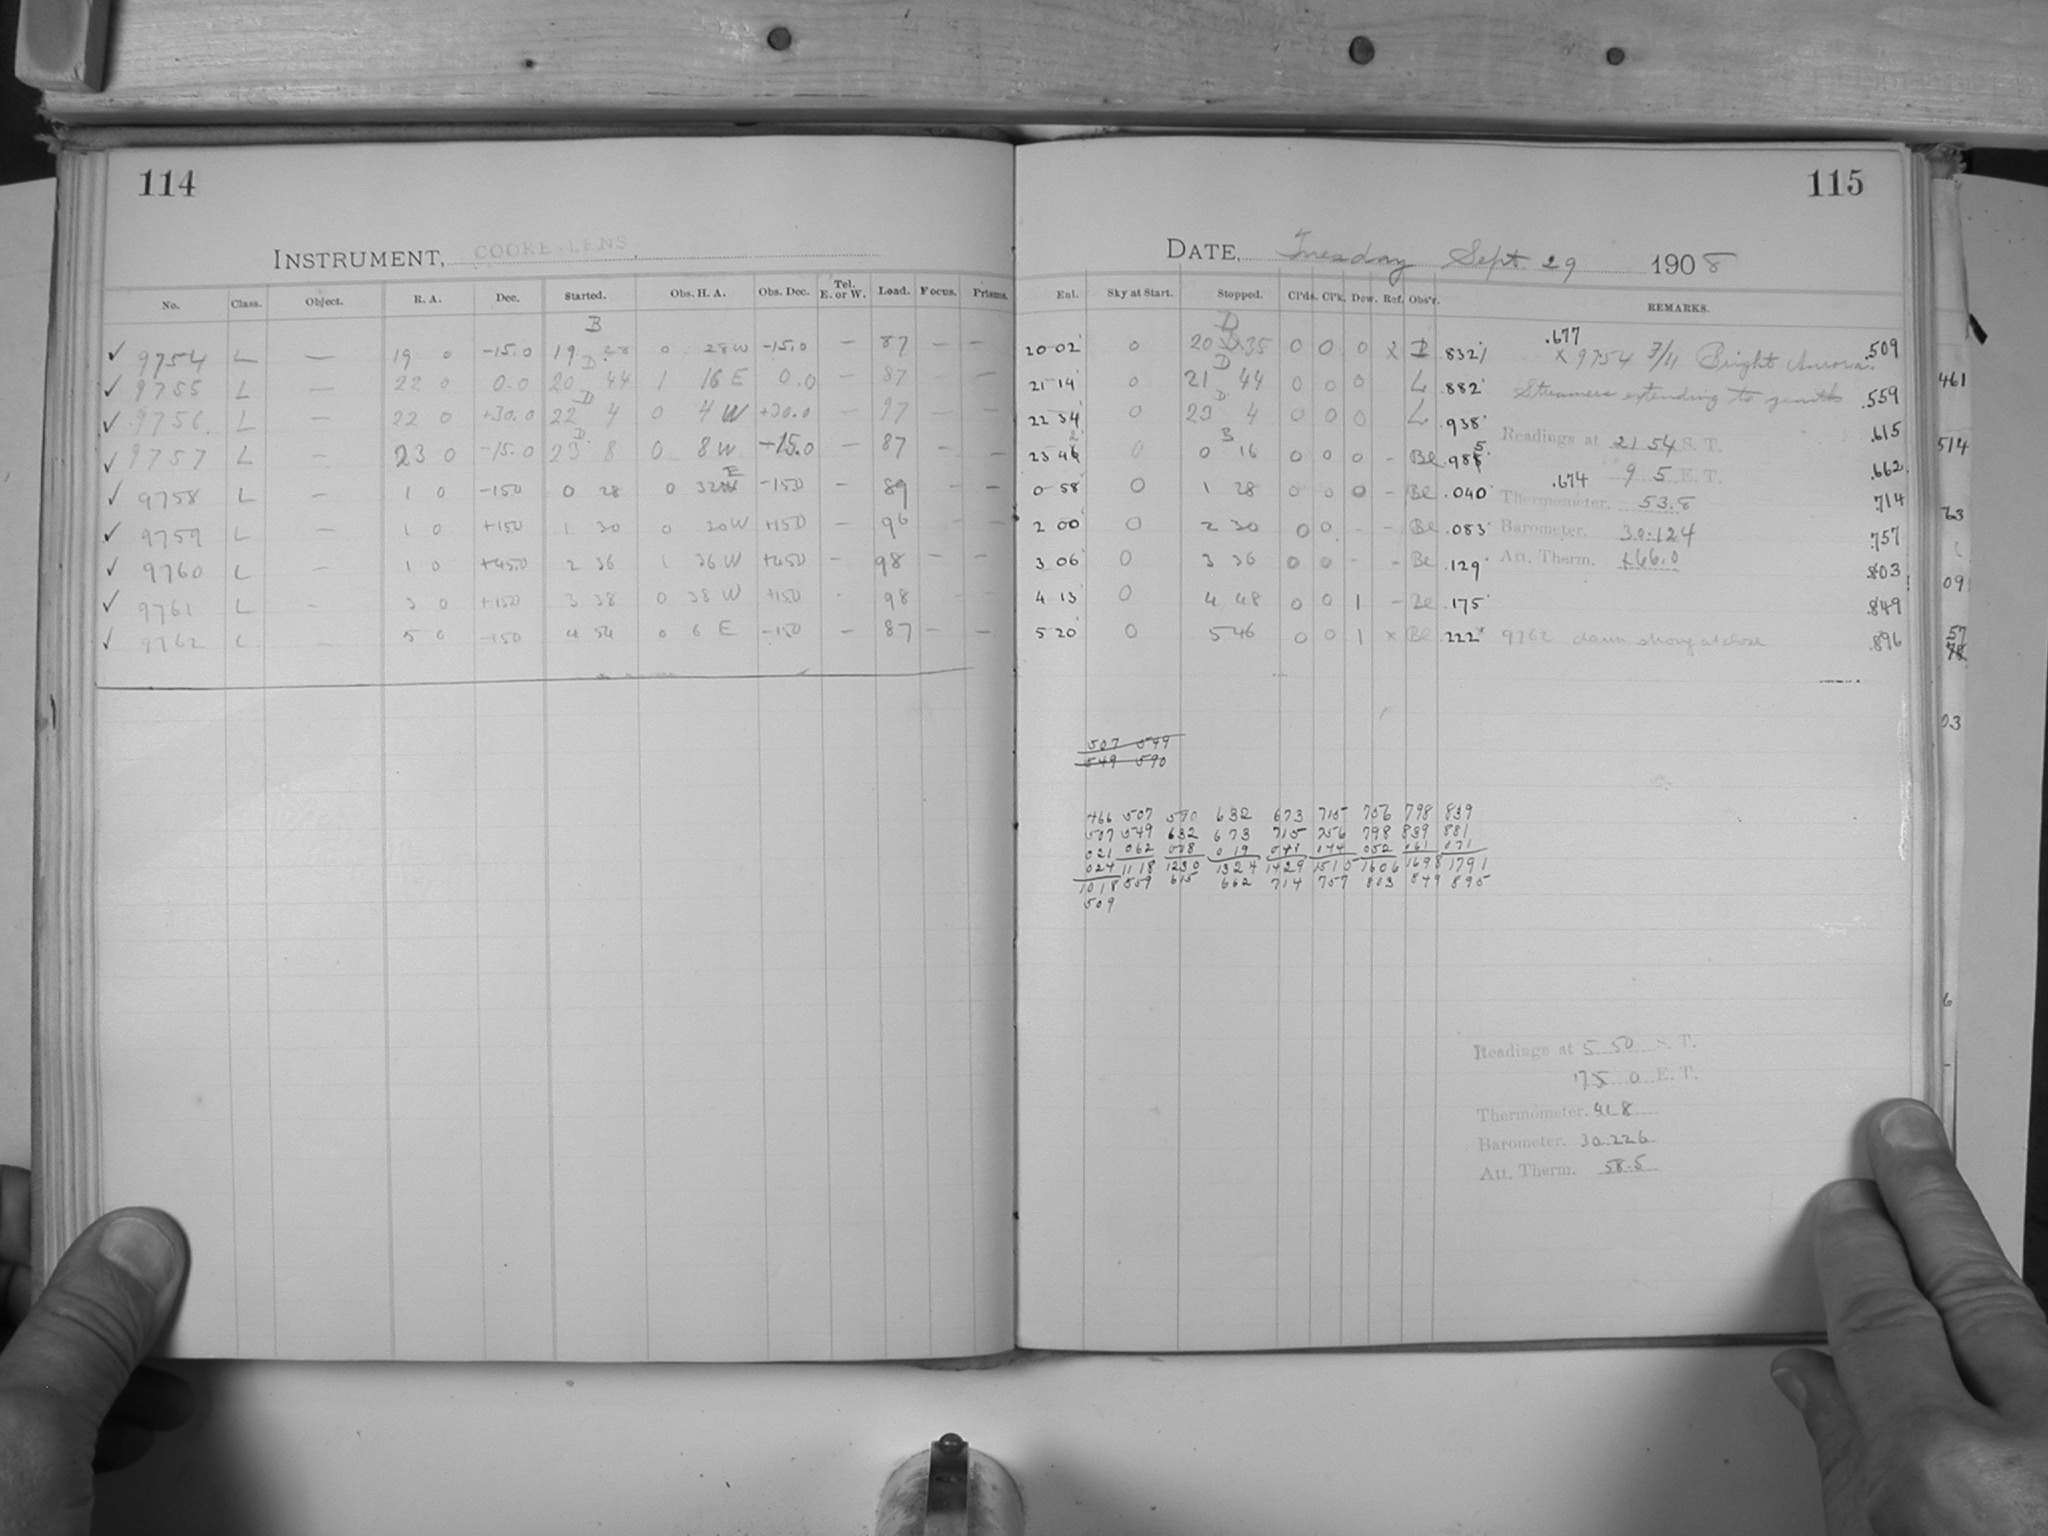 114
INSTRUMENT, COOKE LENS
No. Class. Object. R. A. Dec. Started. Obs. H. A. Obs. Dec. Tel. E. or W. Load. Focus. Prisms.
B
✓ 9754 L — 19 0 -15.0 19 28 0 28 W -15.0 — 87 — —
D
✓ 9755 L — 22 0 0.0 20 44 1 16 E 0.0 — 87 — —
D
✓ 9756 L — 22 0 +30.0 22 4 0 4 W +30.0 — 97 — —
D
✓ 9757 L — 23 0 -15.0 23 8 0 8 W -15.0 — 87 — —
E
✓ 9758 L — 1 0 -150 0 28 0 32 -150 — 89 — —
✓ 9759 L — 1 0 +150 1 30 0 30 W +150 — 96 — —
✓ 9760 L — 1 0 +450 2 36 1 36 W +450 — 98 — —
✓ 9761 L — 3 0 +150 3 38 0 38 W +150 - 98 - -
✓ 9762 L — 5 0 -150 4 54 0 6 E -150 — 87 — —
115
DATE, Tuesday Sept. 29 1908
Eal. Sky at Start. Stopped. Cl'ds. Cl'k. Dew. Ref. Obs'r. REMARKS.
D
20 02 0 20 35 0 0 0 x .832 .677 .509
x 9754 3/4 Bright Aurora.
D
21 14 0 21 44 0 0 0 L .882 Streamers extending to zenith .559
D
22 34 0 23 4 0 0 0 L .938 .615
Readings at 21 54 S. T.
B
23 4 0 0 16 0 0 0 - Be .985 .662
9 5 E. T.
.674
0 58 0 1 28 0 0 0 - Be .040 .714
Thermometer. 53.8
2 00 0 2 30 0 0 - - Be .083 Barometer. 30.124 .757
3 06 0 3 36 0 0 - - Be .129 Att. Therm. 66.0 .803
4 13 0 4 48 0 0 1 - Be .175 .849
5 20 0 5 46 0 0 1 x Be .222 9762 dawn strong at close .896
507 549
549 590
466 507 590 632 673 715 756 798 839
507 549 632 673 715 756 798 839 881
021 062 008 019 041 044 052 061 071
024 1118 1230 1324 1429 1515 1606 1698 1791
1018 559 615 662 714 757 803 849 895
509
Readings at 5 50 S. T.
E. T.
Thermometer. 41 8
Barometer. 30.226
Att. Therm. 58.5
461
514
09
57
03
6